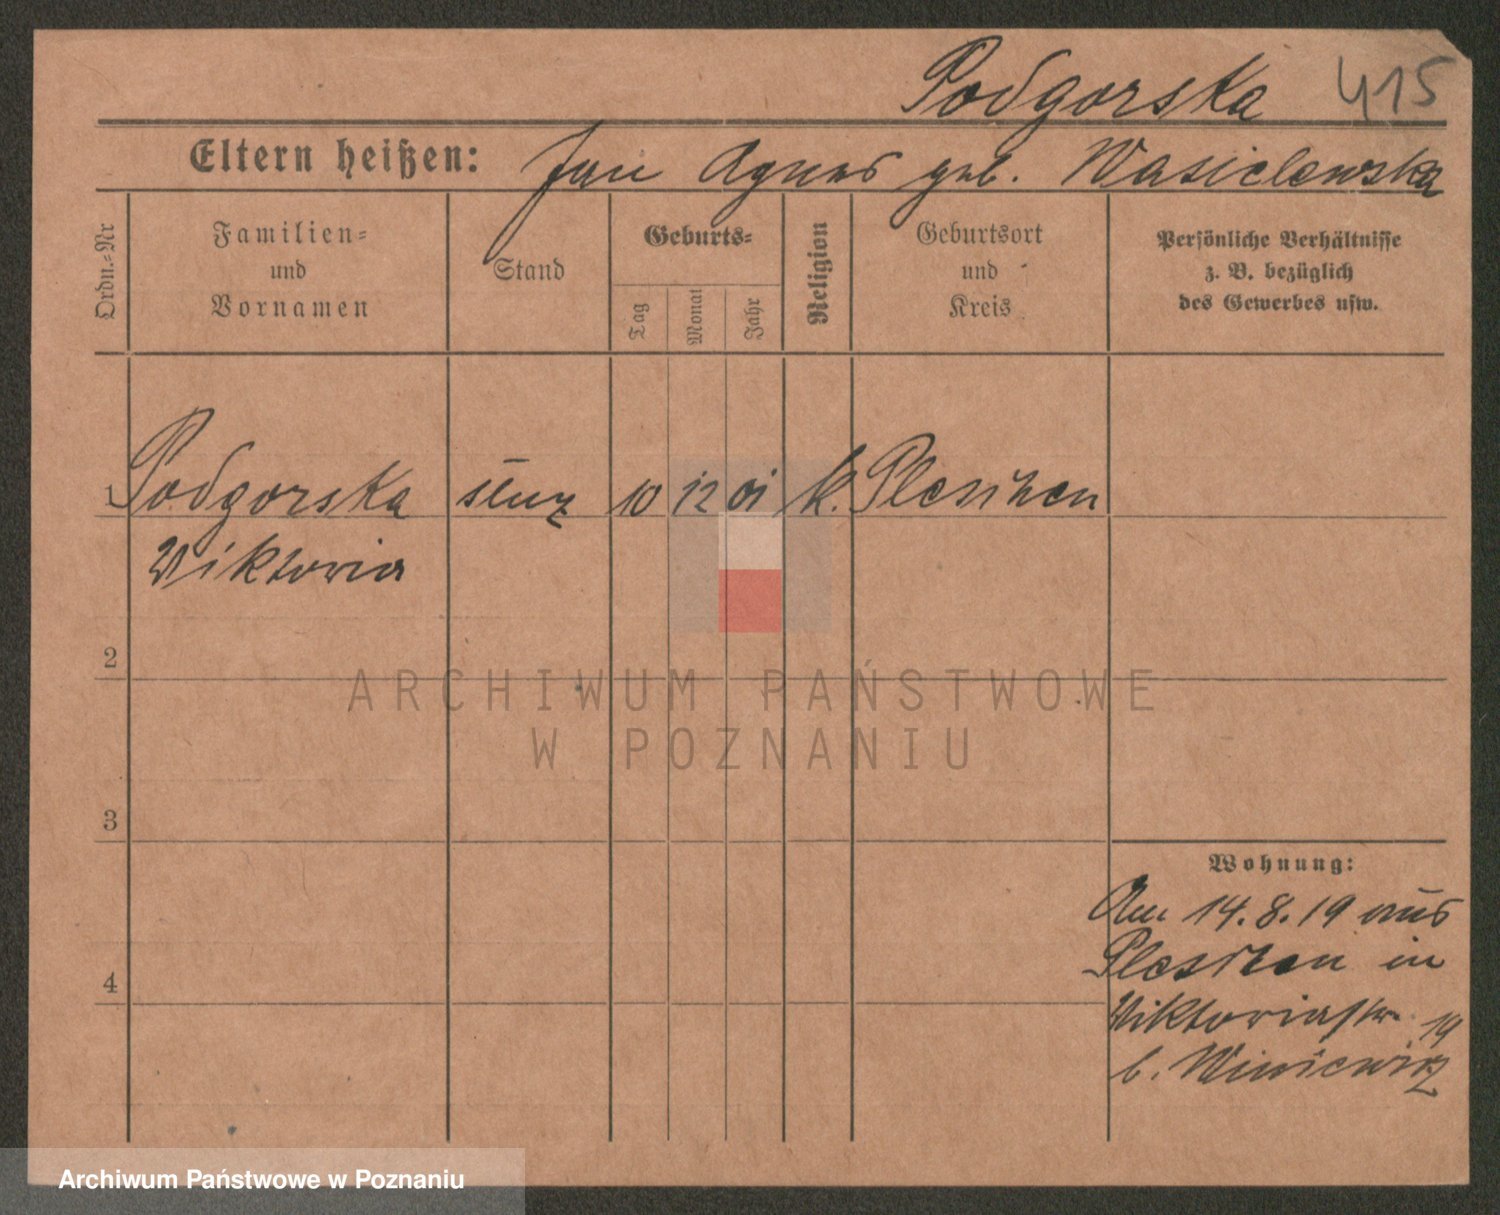 Podgorska 415
Eltern heißen: Jan Agnes geb. Wasielewska
Ordn.=Nr
Familien=
und
Vornamen
Stand
Geburts=
Tag
Monat
Jahr
Religion
Geburtsort
und
Kreis
Persönliche Verhältnisse
z. B. bezüglich
des Gewerbes usw.
1 Podgorska służ 10 12 01 k. Pleschen
Viktoria
2
ARCHIWUM PAŃSTWOWE
W POZNANIU
3
Wohnung:
Am 14.8.19 aus
Pleschen in
4
Viktoriastr. 19
b. Winiewicz
Archiwum Państwowe w Poznaniu